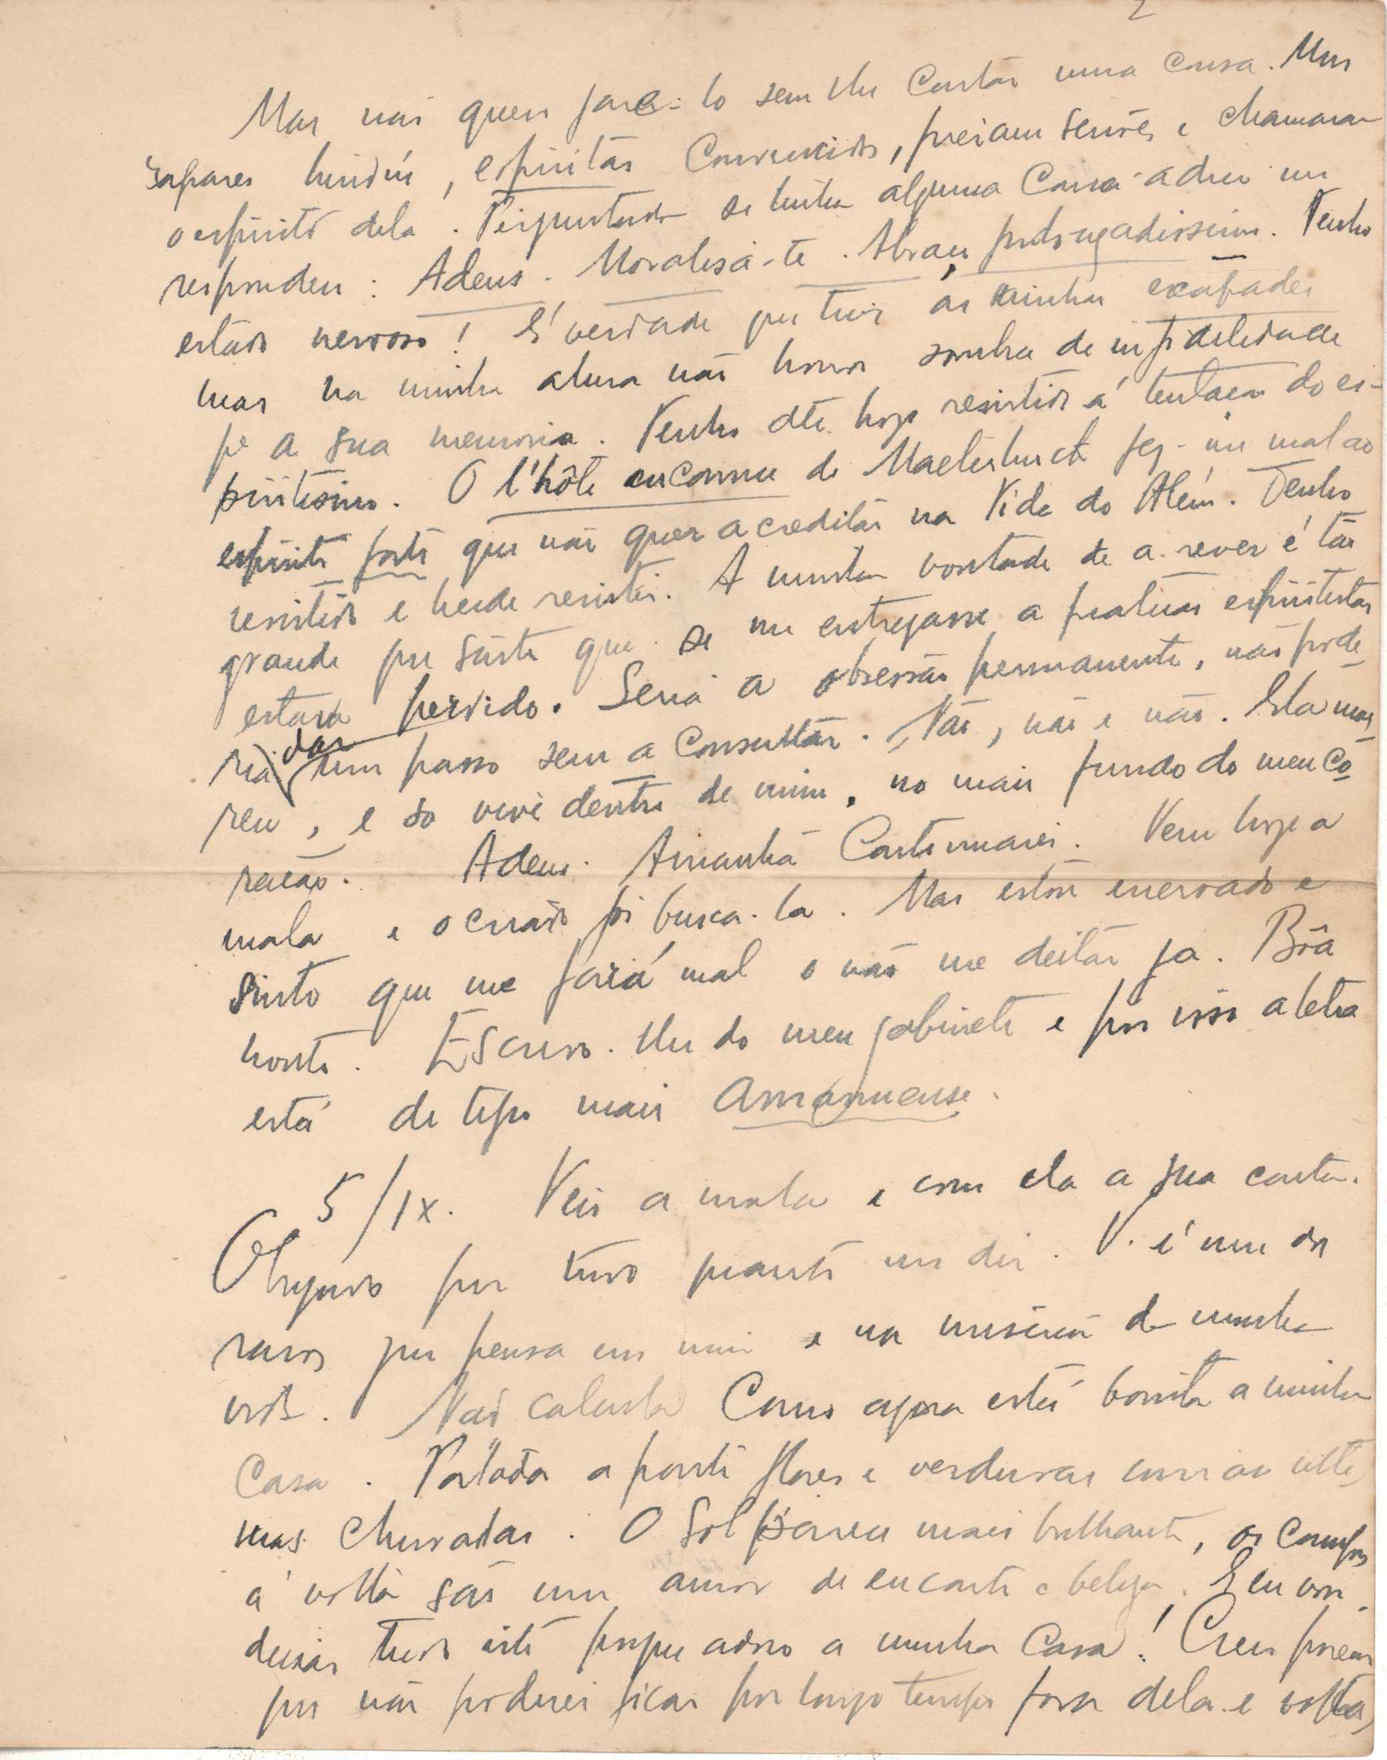 2
Mas não quero faze-lo sem lhe contar uma cousa. Uns
rapazes , espiritas convencidos, fizeram sessões e chamaram
o espirito dela. Perguntada se tinha alguma cousa a dizer me
respondeu: Adeus. Moralisa-te. Abraço prolongadissimo. Tenho
estado nervoso! É verdade que tive as minhas escapades
mas na minha alma não houve sombra de infidelidade
á sua memoria. Tenho até hoje resistido á tentação do es-
piritismo. O l'hôte inconnu de Maeterlinck fez-me mal ao
espirito forte que não quer acreditar na Vida do Além. Tenho
resistido e heide resistir. A minha vontade de a rever é tão
grande que sinto que se me entregasse a praticas espiritistas
estava perdido. Seria a obsessão permanente, não pode-
ria dar um passo sem a consultar. Não, não e não. Ela mor-
reu, e só vive dentro de mim, no mais fundo do meu co-
ração. Adeus. Amanhã continuarei. Veiu hoje a
mala e o criado foi busca-la. Mas estou enervado e
sinto que me fará mal o não me deitar já. Bôa
noite. Escrevo-lhe do meu gabinete e por isso a letra
está de typo mais amanuense.
5/IX. Veio a mala e com ela a sua carta.
Obrigado por tudo quanto me diz. V. é um dos
raros que pensa em mim e na miseria da minha
vida. Não calcula como agora está bonita a minha
casa. Voltada a ponte flores e verduras com as ulti-
mas chuvadas. O Sol parece mais brilhante, os campos
á volta são um amor de encanto e beleza. E eu vou
deixar tudo isto porque adoro a minha casa! Creio porem
que não poderei ficar por longo tempo fora dela e voltar,